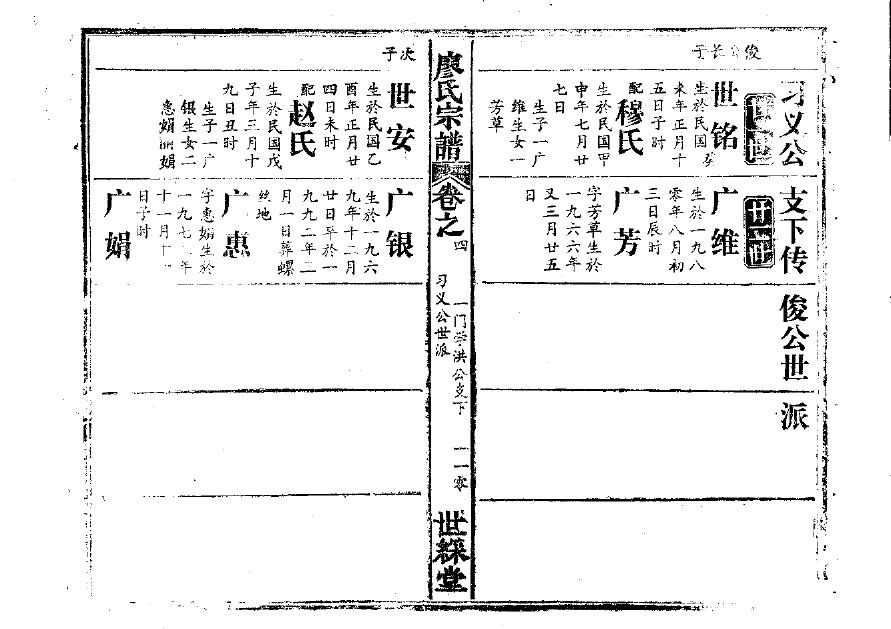 习义公 支下传 俊公世派
俊公长子
世铭
生於民国癸
未年正月十
五日子时
配
穆氏
生於民国甲
申年七月廿
七日
生子一广
维生女一
芳草
广维
生於一九八
零年八月初
三日辰时
广芳
字芳草生於
一九六六年
又三月廿五
日
廖氏宗譜
卷之四
一门学洪公支下
习义公世派
一一零
世綵堂
次子
世安
生於民国乙
酉年正月廿
四日未时
配
赵氏
生於民国戊
子年三月十
九日丑时
生子一广
银生女二
惠娟丽娟
广银
生於一九六
九年十二月
廿日卒於一
九九二年二
月一日葬螺
丝地
广惠
字惠娟生於
一九七
十一月十
日子时
广娟